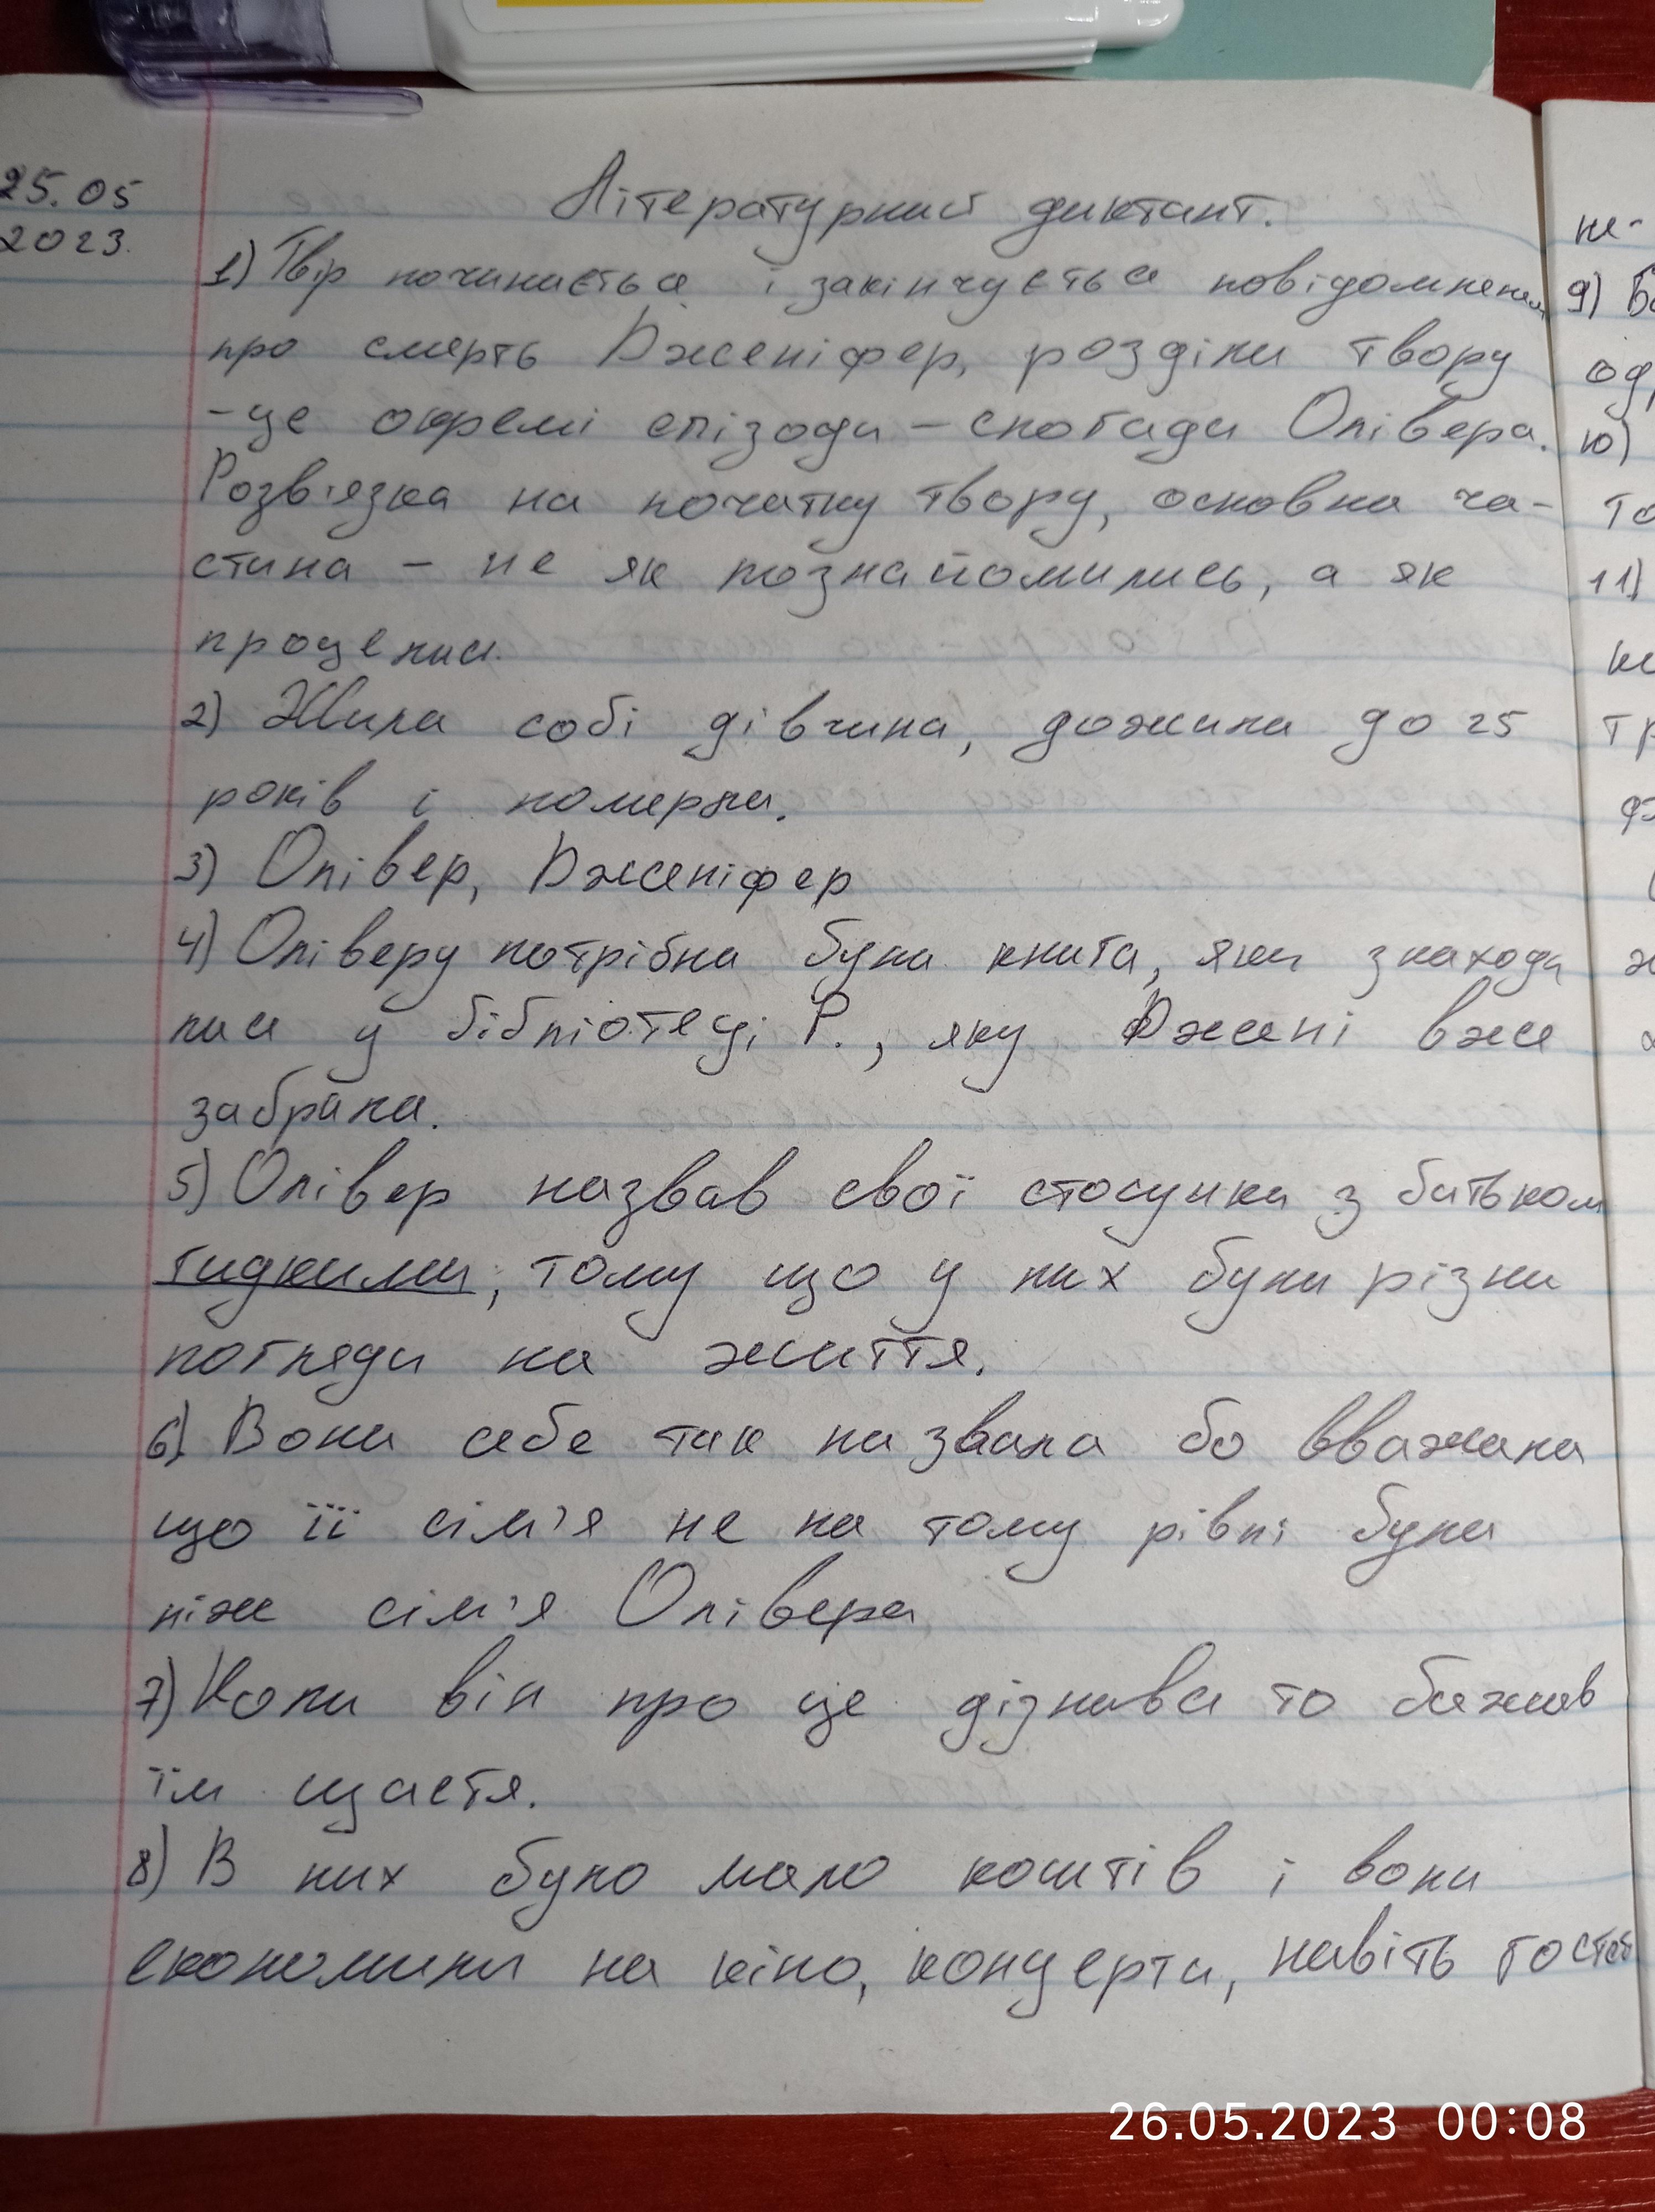 25.05
2023.
Літературний диктант.
1) Твір починається і закінчується повідомленням
про смерть Дженіфер, розділи твору
- це окремі епізоди - спогади Олівера.
Розв'язка на початку твору, основна ча-
стина - не як познайомились, а як
прощались.
2) Жила собі дівчина, дожила до 25
років і померла.
3) Олівер, Дженіфер
4) Оліверу потрібна була книга, яка знаходи
лися у бібліотеці Р., яку Джені вже
забрала.
5) Олівер назвав свої стосунки з батьком
гидкими, тому що у них були різни
погляди на життя.
6) Вона себе так назвала бо вважала
що її сім'я не на тому рівні була
ніж сім'я Олівера
7) Коли він про це дізнався то бажав
їм щастя.
8) В них було мало коштів і вони
економили на кіно, концерти, навіть
не-
9)
10)
то
11)
26.05.2023 00:08